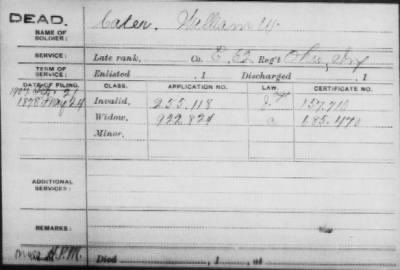 DEAD.
NAME OF SOLDIER: Cater, William W.
SERVICE: Late rank, Co. E, 52 Reg't Ohio Inf
TERM OF SERVICE: Enlisted , 1 Discharged , 1
DATE OF FILING. CLASS. APPLICATION NO. LAW. CERTIFICATE NO.
1878 May 24 Invalid, 255.118 157.710
Widow, 922.824 185.470
Minor,
ADDITIONAL SERVICES:
REMARKS:
Died , 1 , at